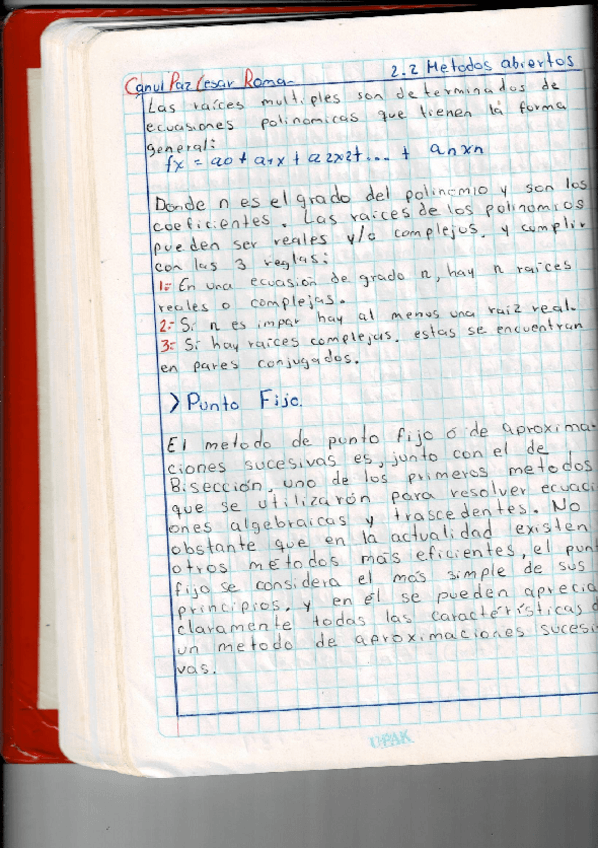 Canul Paz Cesar Roma-
2.2 Metodos abiertos
Las raíces multiples son determinados de
ecuasiones polinomicas que tienen la forma
general:
fx = a0 + a1x + a2x2+... + anxn
Donde n es el grado del polinomio y son los
coeficientes. Las raices de los polinomios
pueden ser reales y/o complejos. y cumplir
con las 3 reglas:
1:- En una ecuasión de grado n, hay n raices
reales o complejas.
2:- Si n es impar hay al menos una raíz real.
3:- Si hay raíces complejas. estas se encuentran
en pares conjugados.
> Punto Fijo.
El metodo de punto fijo ó de aproxima-
ciones sucesivas es, junto con el de
Bisección, uno de los primeros metodos
que se utilizarón para resolver ecuaci
ones algebraicas y trascedentes. No
obstante que en la actualidad existen
otros métodos más eficientes, el punt
fijo se considera el más simple de sus
principios, y en él se pueden aprecia
claramente todas las características d
un metodo de aproximaciones sucesi
vas.